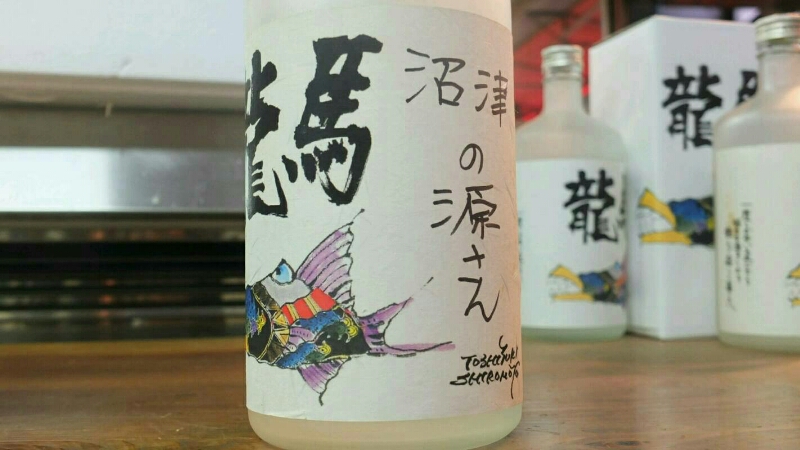 龍馬
沼津
の源さん
TOSHIYUKI
SHIROMOTO
龍
龍